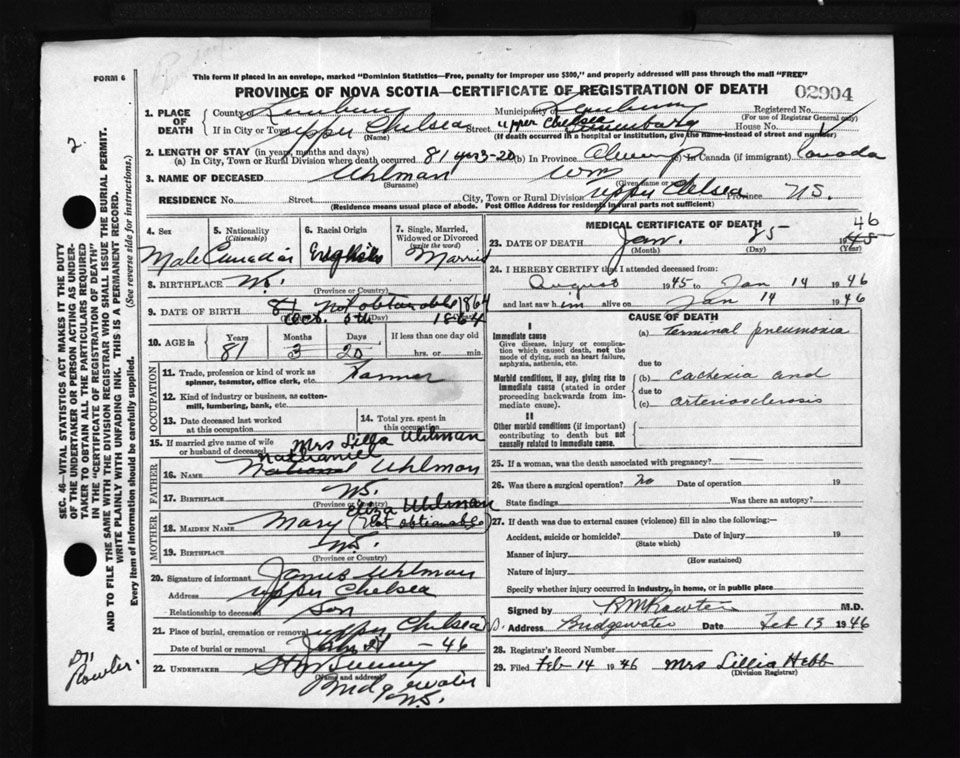 FORM 6
This form if placed in an envelope, marked "Dominion Statistics—Free, penalty for improper use $300," and properly addressed will pass through the mail "FREE"
PROVINCE OF NOVA SCOTIA—CERTIFICATE OF REGISTRATION OF DEATH
02904
1. PLACE OF DEATH
County of Lunenburg Municipality of Lunenburg Registered No.
(For use of Registrar General only)
If in City or Town Upper Chelsea Street Upper Chelsea Lunenburg House No.
(Name) (If death occurred in a hospital or institution, give the name instead of street and number)
2. LENGTH OF STAY (in years, months and days)
(a) In City, Town or Rural Division where death occurred 81 yrs 3-20 (b) In Province Always (c) In Canada (if immigrant) Canada
3. NAME OF DECEASED Uhlman Wm
(Surname) (Given name or names)
RESIDENCE No. Street City, Town or Rural Division Upper Chelsea NS.
(Residence means usual place of abode. Post Office Address for residents in rural parts not sufficient)
4. Sex
Male
5. Nationality
(Citizenship)
Canadian
6. Racial Origin
English
7. Single, Married, Widowed or Divorced
(write the word)
Married
8. BIRTHPLACE NS.
(Province or Country)
9. DATE OF BIRTH 81 Not obtainable 1864
Oct. 5th 1864
(Day)
10. AGE in Years Months Days If less than one day old
81 3 20 hrs. or min.
OCCUPATION
11. Trade, profession or kind of work as spinner, teamster, office clerk, etc. Farmer
12. Kind of industry or business, as cotton-mill, lumbering, bank, etc.
13. Date deceased last worked at this occupation
14. Total yrs. spent in this occupation
15. If married give name of wife or husband of deceased Mrs Lilla Uhlman
FATHER
Nathaniel
16. NAME National Uhlman
17. BIRTHPLACE NS.
(Province or Country)
MOTHER
Eliza Uhlman
18. MAIDEN NAME Mary (Not obtainable)
19. BIRTHPLACE NS.
(Province or Country)
20. Signature of informant James Uhlman
Address Upper Chelsea
Relationship to deceased Son
21. Place of burial, cremation or removal Upper Chelsea
Date of burial or removal Jan 27 - 46
22. UNDERTAKER
(Name and address)
Bridgewater
NS.
MEDICAL CERTIFICATE OF DEATH
46
23. DATE OF DEATH Jan. 25 1945
(Month) (Day) (Year)
24. I HEREBY CERTIFY that I attended deceased from:
August 1945 to Jan 14 1946
and last saw him alive on Jan 14 1946
CAUSE OF DEATH
I
Immediate cause
Give disease, injury or complication which caused death, not the mode of dying, such as heart failure, asphyxia, asthenia, etc.
(a) terminal pneumonia
due to
Morbid conditions, if any, giving rise to immediate cause (stated in order proceeding backwards from immediate cause).
(b) Cachexia and
due to
(c) arteriosclerosis
II
Other morbid conditions (if important) contributing to death but not causally related to immediate cause.
25. If a woman, was the death associated with pregnancy? —
26. Was there a surgical operation? no Date of operation 19
State findings Was there an autopsy?
27. If death was due to external causes (violence) fill in also the following:—
Accident, suicide or homicide? Date of injury 19
(State which)
Manner of injury
(How sustained)
Nature of injury
Specify whether injury occurred in industry, in home, or in public place
Signed by M.D.
Address Bridgewater Date Feb 13 1946
28. Registrar's Record Number
29. Filed Feb 14 1946 Mrs Lillia Hebb
(Division Registrar)
2.
SEC. 46—VITAL STATISTICS ACT MAKES IT THE DUTY
OF THE UNDERTAKER OR PERSON ACTING AS UNDERTAKER
TO OBTAIN ALL THE PARTICULARS REQUIRED
IN THE "CERTIFICATE OF REGISTRATION OF DEATH"
AND TO FILE THE SAME WITH THE DIVISION REGISTRAR WHO SHALL ISSUE THE BURIAL PERMIT.
WRITE PLAINLY WITH UNFADING INK. THIS IS A PERMANENT RECORD.
Every item of information should be carefully supplied. (See reverse side for instructions.)
Dr.